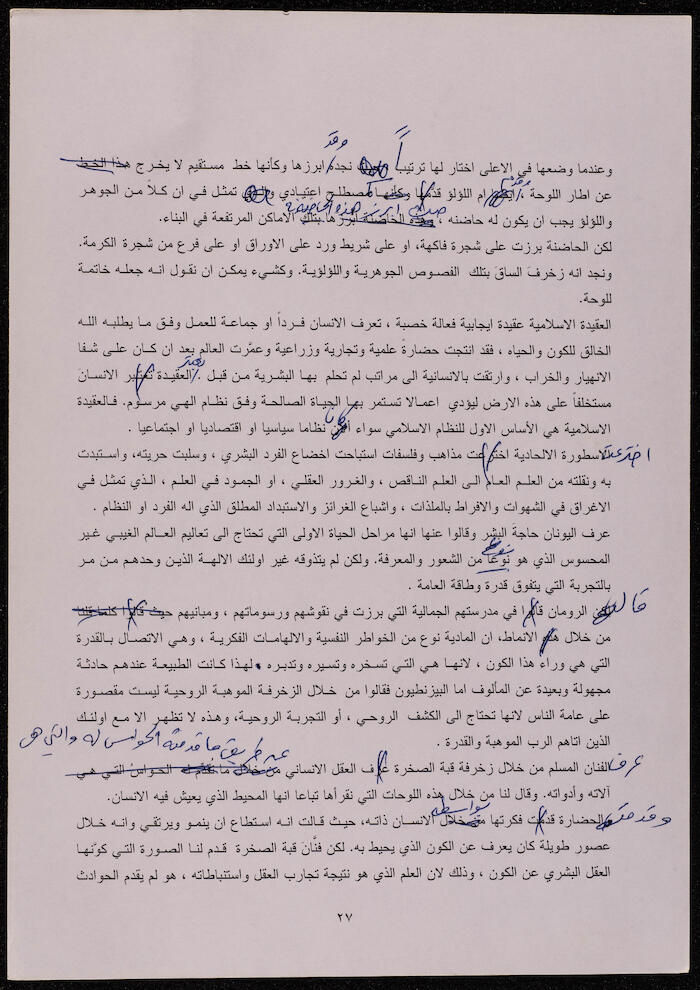 وقد
وعندما وضعها في الاعلى اختار لها ترتيباً نجده ابرزها وكأنها خط مستقيم لا يخرج هذا الخط
عن اطار اللوحة . ام اللؤلؤ قدمها وكأنها مصطلح اعتيادي تمثل في ان كلاً من الجوهر
هذه الحاضنة
واللؤلؤ يجب ان يكون له حاضنه ، وهذه الخاضنة ابرزها بتلك الاماكن المرتفعة في البناء.
لكن الحاضنة برزت على شجرة فاكهة، او على شريط ورد على الاوراق او على فرع من شجرة الكرمة.
ونجد انه زخرف الساق بتلك الفصوص الجوهرية واللؤلؤية. وكشيء يمكن ان نقول انه جعله خاتمة
للوحة.
العقيدة الاسلامية عقيدة ايجابية فعالة خصبة ، تعرف الانسان فرداً او جماعة للعمل وفق ما يطلبه الله
الخالق للكون والحياه ، فقد انتجت حضارة علمية وتجارية وزراعية وعمّرت العالم بعد ان كان على شفا
الانهيار والخراب ، وارتقت بالانسانية الى مراتب لم تحلم بها البشرية من قبل . العقيدة تعتبر الانسان
مستخلفاً على هذه الارض ليؤدي اعمالا تستمر بها الحياة الصالحة وفق نظام الهي مرسوم. فالعقيدة
الاسلامية هي الأساس الاول للنظام الاسلامي سواء أكان نظاما سياسيا او اقتصاديا او اجتماعيا .
الاسطورة الالحادية اخترعت مذاهب وفلسفات استباحت اخضاع الفرد البشري ، وسلبت حريته، واستبدت اخترعت
به ونقلته من العلم العام الى العلم الناقص ، والغرور العقلي ، او الجمود في العلم ، الذي تمثل في
الاغراق في الشهوات والافراط بالملذات ، واشباع الغرائز والاستبداد المطلق الذي اله الفرد او النظام .
عرف اليونان حاجة البشر وقالوا عنها انها مراحل الحياة الاولى التي تحتاج الى تعاليم العالم الغيبي غير
المحسوس الذي هو نوعاً من الشعور والمعرفة. ولكن لم يتذوقه غير اولئك الالهة الذين وحدهم من مر
بالتجربة التي يتفوق قدرة وطاقة العامة .
الرومان قالوا في مدرستهم الجمالية التي برزت في نقوشهم ورسوماتهم ، ومبانيهم حيث قالوا كلما قلنا
من خلال هذه الانماط، ان المادية نوع من الخواطر النفسية والالهامات الفكرية ، وهي الاتصال بالقدرة
التي هي وراء هذا الكون ، لانها هي التي تسخره وتسيره وتدبره . لهذا كانت الطبيعة عندهم حادثة
مجهولة وبعيدة عن المألوف اما البيزنطيون فقالوا من خلال الزخرفة الموهبة الروحية ليست مقصورة
على عامة الناس لانها تحتاج الى الكشف الروحي ، أو التجربة الروحية، وهذه لا تظهر الا مع اولئك
الذين اتاهم الرب الموهبة والقدرة .
عن طريق ما قدمته الحواس له والتي هي
عرف الفنان المسلم من خلال زخرفة قبة الصخرة عرف العقل الانساني من خلال ما تقدمه الحواس التي هي
آلاته وأدواته. وقال لنا من خلال هذه اللوحات التي نقرأها تباعا انها المحيط الذي يعيش فيه الانسان.
بواسطة
وقدمت الحضارة قدمت فكرتها من خلال الانسان ذاته، حيث قالت انه استطاع ان ينمو ويرتقي وانه خلال
عصور طويلة كان يعرف عن الكون الذي يحيط به. لكن فنّان قبة الصخرة قدم لنا الصورة التي كوّنها
العقل البشري عن الكون ، وذلك لان العلم الذي هو نتيجة تجارب العقل واستنباطاته ، هو لم يقدم الحوادث
٢٧